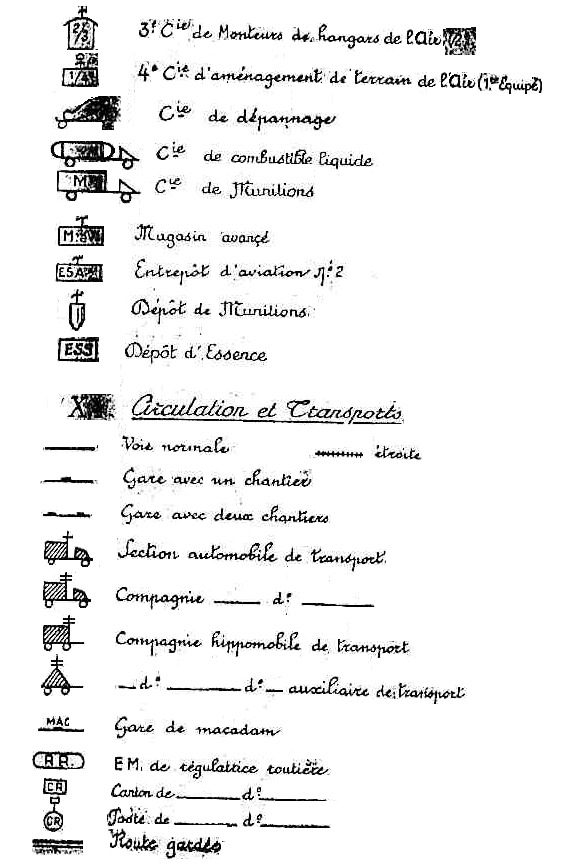 3e Cie de Monteurs de hangars de l'Air
1/4 4e Cie d'aménagement de terrain de l'Air (1re Equipe)
Cie de dépannage
Cie de combustible liquide
M Cie de Munitions
Magasin avancé
ESA Entrepôt d'aviation No 2
Dépôt de Munitions.
ESS Dépôt d'Essence
X Circulation et Transports
Voie normale étroite
Gare avec un chantier
Gare avec deux chantiers
Section automobile de transport.
Compagnie ____ do ____
Compagnie hippomobile de transport
_ do ____ do _ auxiliaire de transport
MAC Gare de macadam
R.R. E.M. de régulatrice routière
CR Canton de ____ do ____
CR Poste de ____ do ____
Route gardée